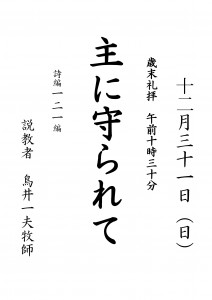 十二月三十一日(日)
歳末礼拝 午前十時三十分
主に守られて
詩編一二一編
説教者 鳥井一夫牧師